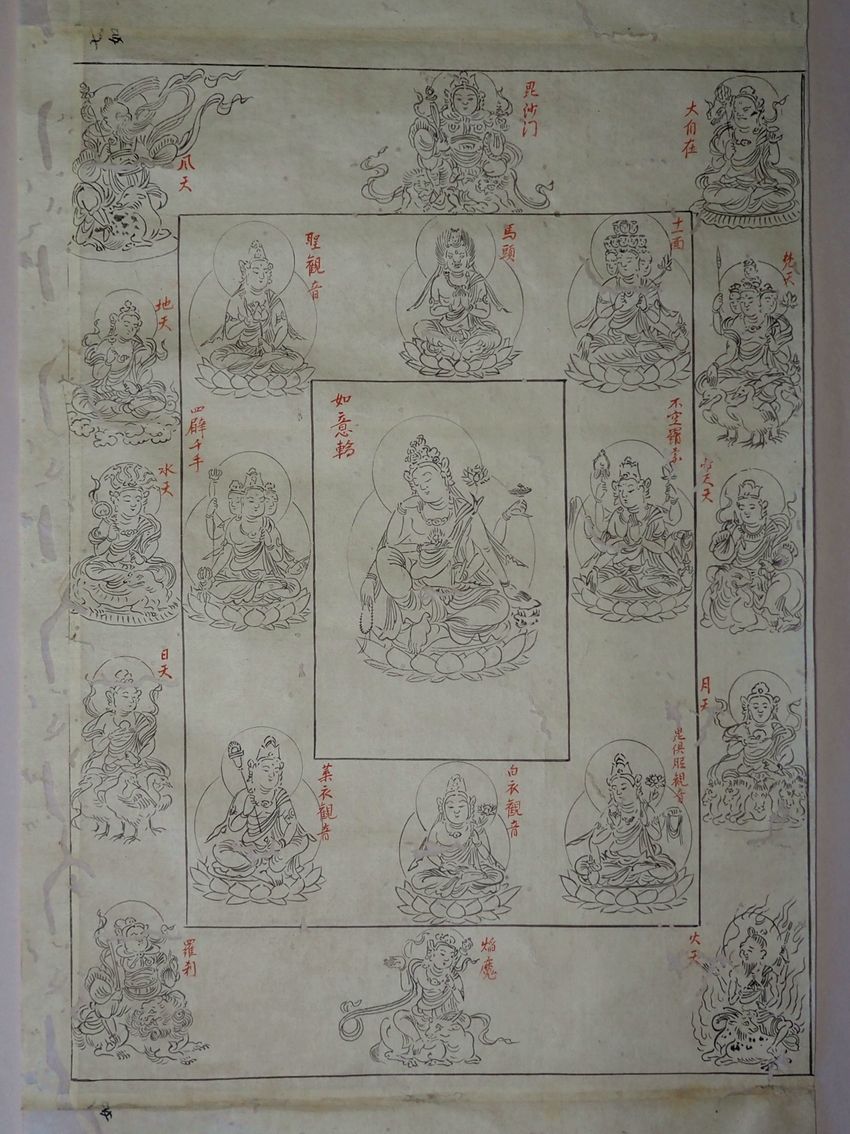 毘沙门
大自在
風天
十一面
馬頭
聖觀音
梵天
地天
如意輪
不空羂索
四臂千手
水天
日天
月天
毘倶胝觀音
白衣觀音
葉衣觀音
火天
焔魔
羅刹